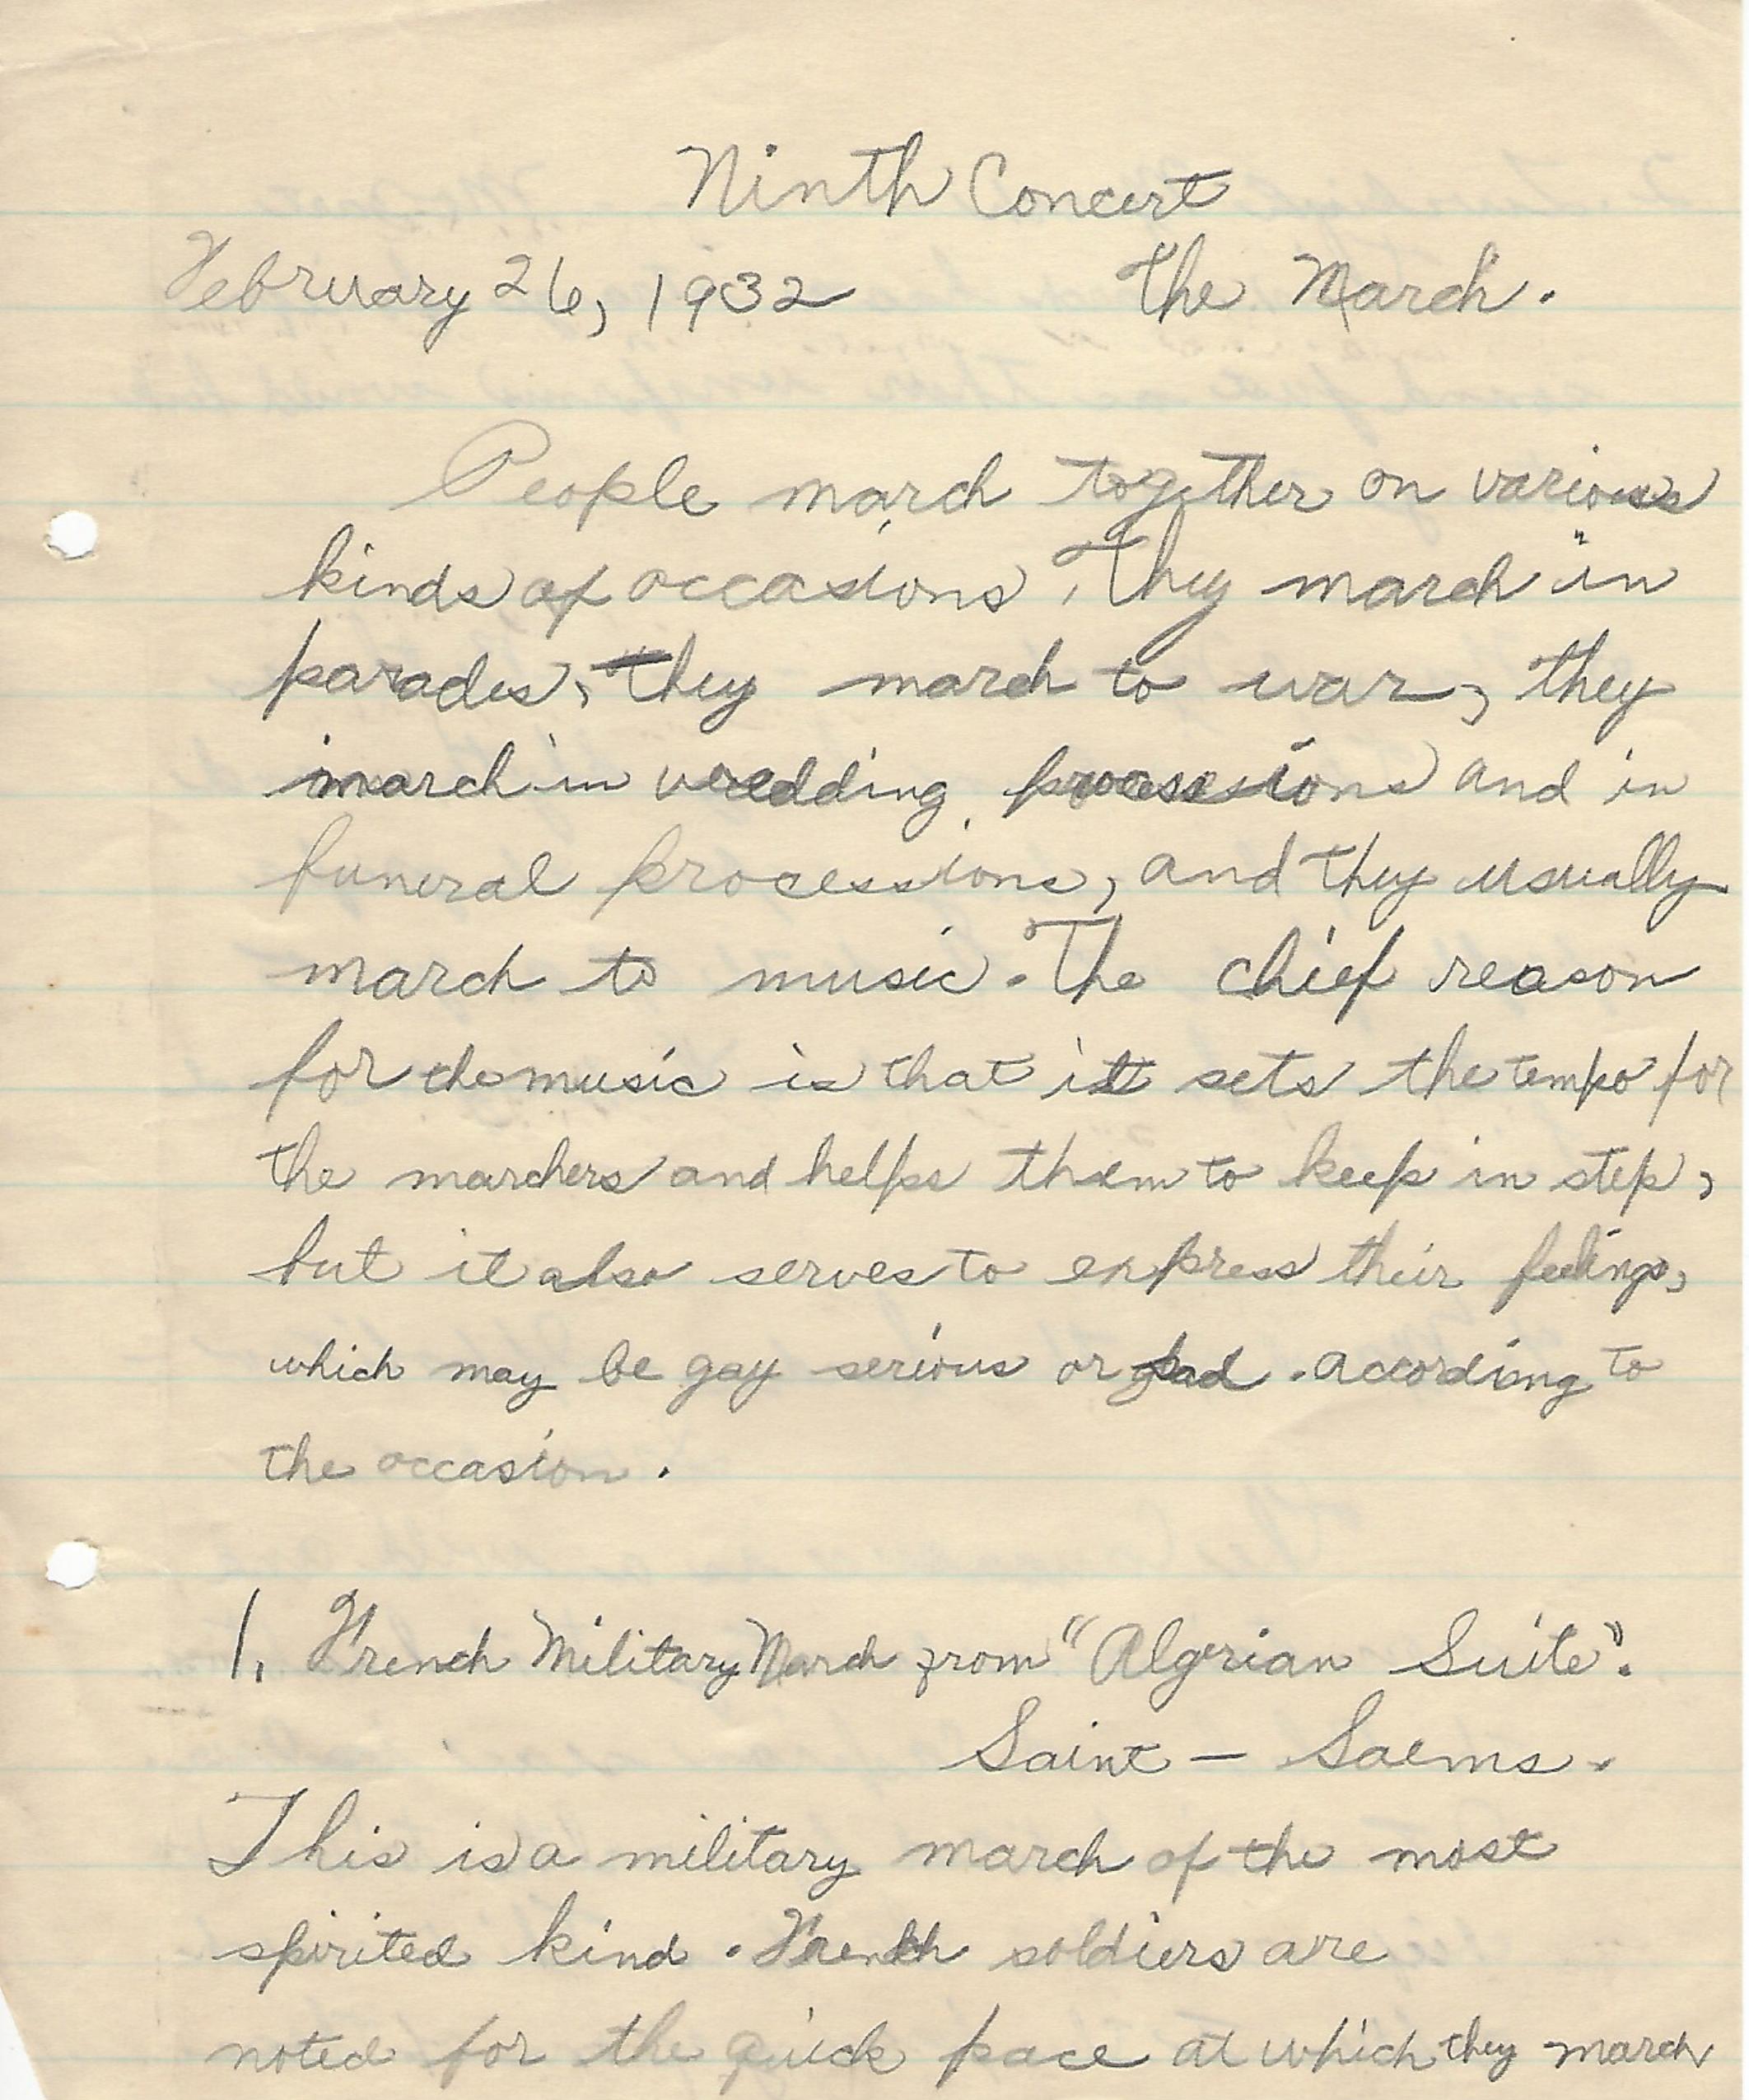 Ninth Concert
February 26, 1932 The March.
People march together on various
kinds of occasions. They march in
parades, they march to war, they
march in wedding processions and in
funeral processions, and they usually
march to music. The chief reason
for the music is that it sets the tempo for
the marchers and helps them to keep in step,
but it also serves to express their feelings,
which may be gay serious or sad. according to
the occasion.
1. French Military March from "Algerian Suite".
Saint - Saems.
This is a military march of the most
spirited kind. French soldiers are
noted for the quick pace at which they march